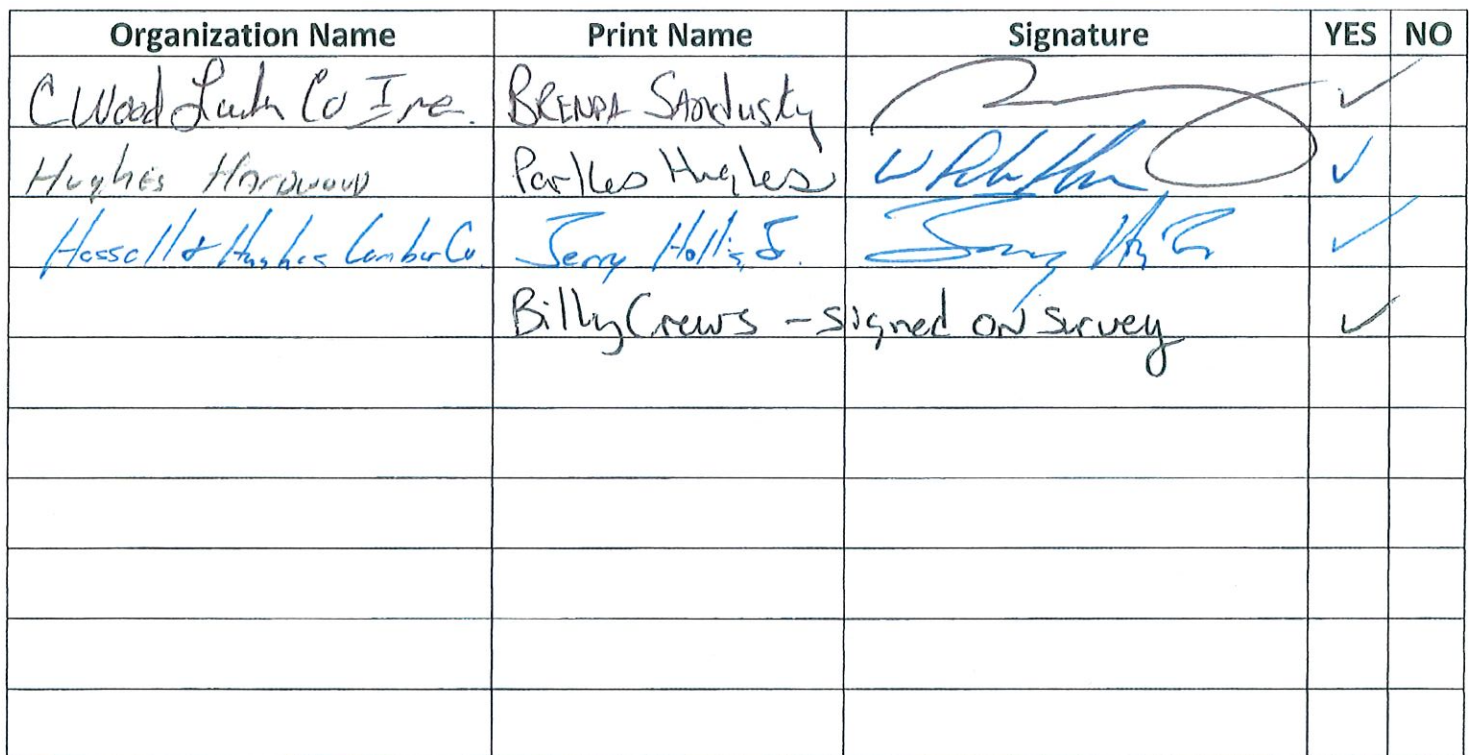 Organization Name Print Name Signature YES NO
C Wood Co Inc. BRENDA Sandusky ✓
Hughes Hardwood Hughes ✓
Hassell & Hughes Lumber Co. Jerry Hollis Jr. ✓
Billy Crews - signed on survey ✓